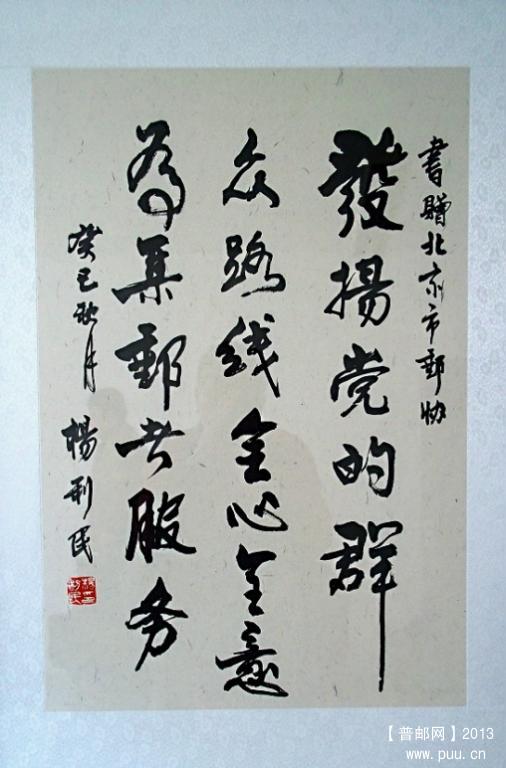 書贈北京市郵协
發揚党的群
众路线全心全意
為集郵者服务
癸巳秋月 楊利民
【普邮网】2013
www.puu.cn